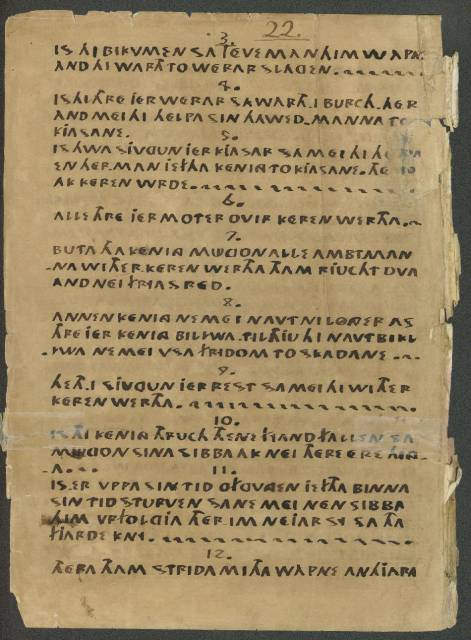 22.
3.
IS HI BIKVMEN SA TÉVE MAN HIM WAPN
AND HI WARTH TO WERAR SLAGEN.
4.
IS HI THRE JER WERAR SA WARTH.I BURCH.HER
AND MEI HI HELPA SIN HAWED.MANNA TO
KJASANE.
5.
IS HWA SJUGUN JER KJASAR SA MEI HI HELPA
EN HER.MAN JEFTHA KENIG TO KJASANE. THER TO
AK KEREN WRDE.
6.
ALLE THRE JER MOT ER OVIR KEREN WERTHA.
7.
BUTA THA KENIG MUGON ALLE AMBTMAN
NA WITHER KEREN WERTHA THAM RJUCHT DVA
AND NEI FRIAS RED.
8.
ANNEN KENIG NE MEI NAVT NI LONGER AS
THRE JER KENIG BILIWA. TIL THJU HI NAVT BIKL
IWA NE MEI VSA FRIDOM TO SKADANE.
9.
HETH.I SJUGUN JER REST SA MEI HI WITHER
KEREN WERTHA.
10.
IS THI KENIG THRUCH THENE FIAND FALLEN SA
MUGON SINA SIBBA AK NEI THERE ERE THIG
A.
11.
IS.ER VPPA SIN TID OFGVGEN JEFTHA BINNA
SIN TID STURVEN SA NE MEI NEN SIBBA
HIM VRFOLGJA THER.IM NEJAR SY SA THA
FJARDE KNY.
12.
THERA THAM STRIDA MITHA WAPNE AN HJARA